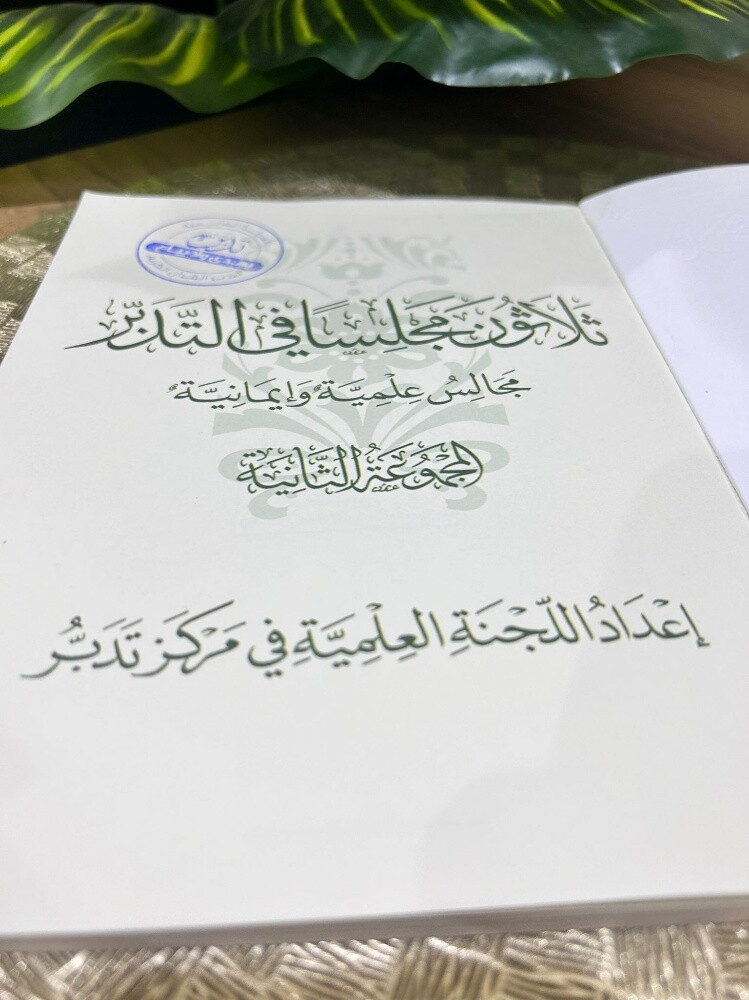 ثَلَاثُونَ مَجْلِسًا فِي التَّدَبُّرِ
مَجَالِسُ عِلْمِيَّةٌ وَإِيمَانِيَّةٌ
المَجْمُوعَةُ الثَّانِيَةُ
إِعْدَادُ اللَّجْنَةِ العِلْمِيَّةِ فِي مَرْكَزِ تَدَبُّرٍ